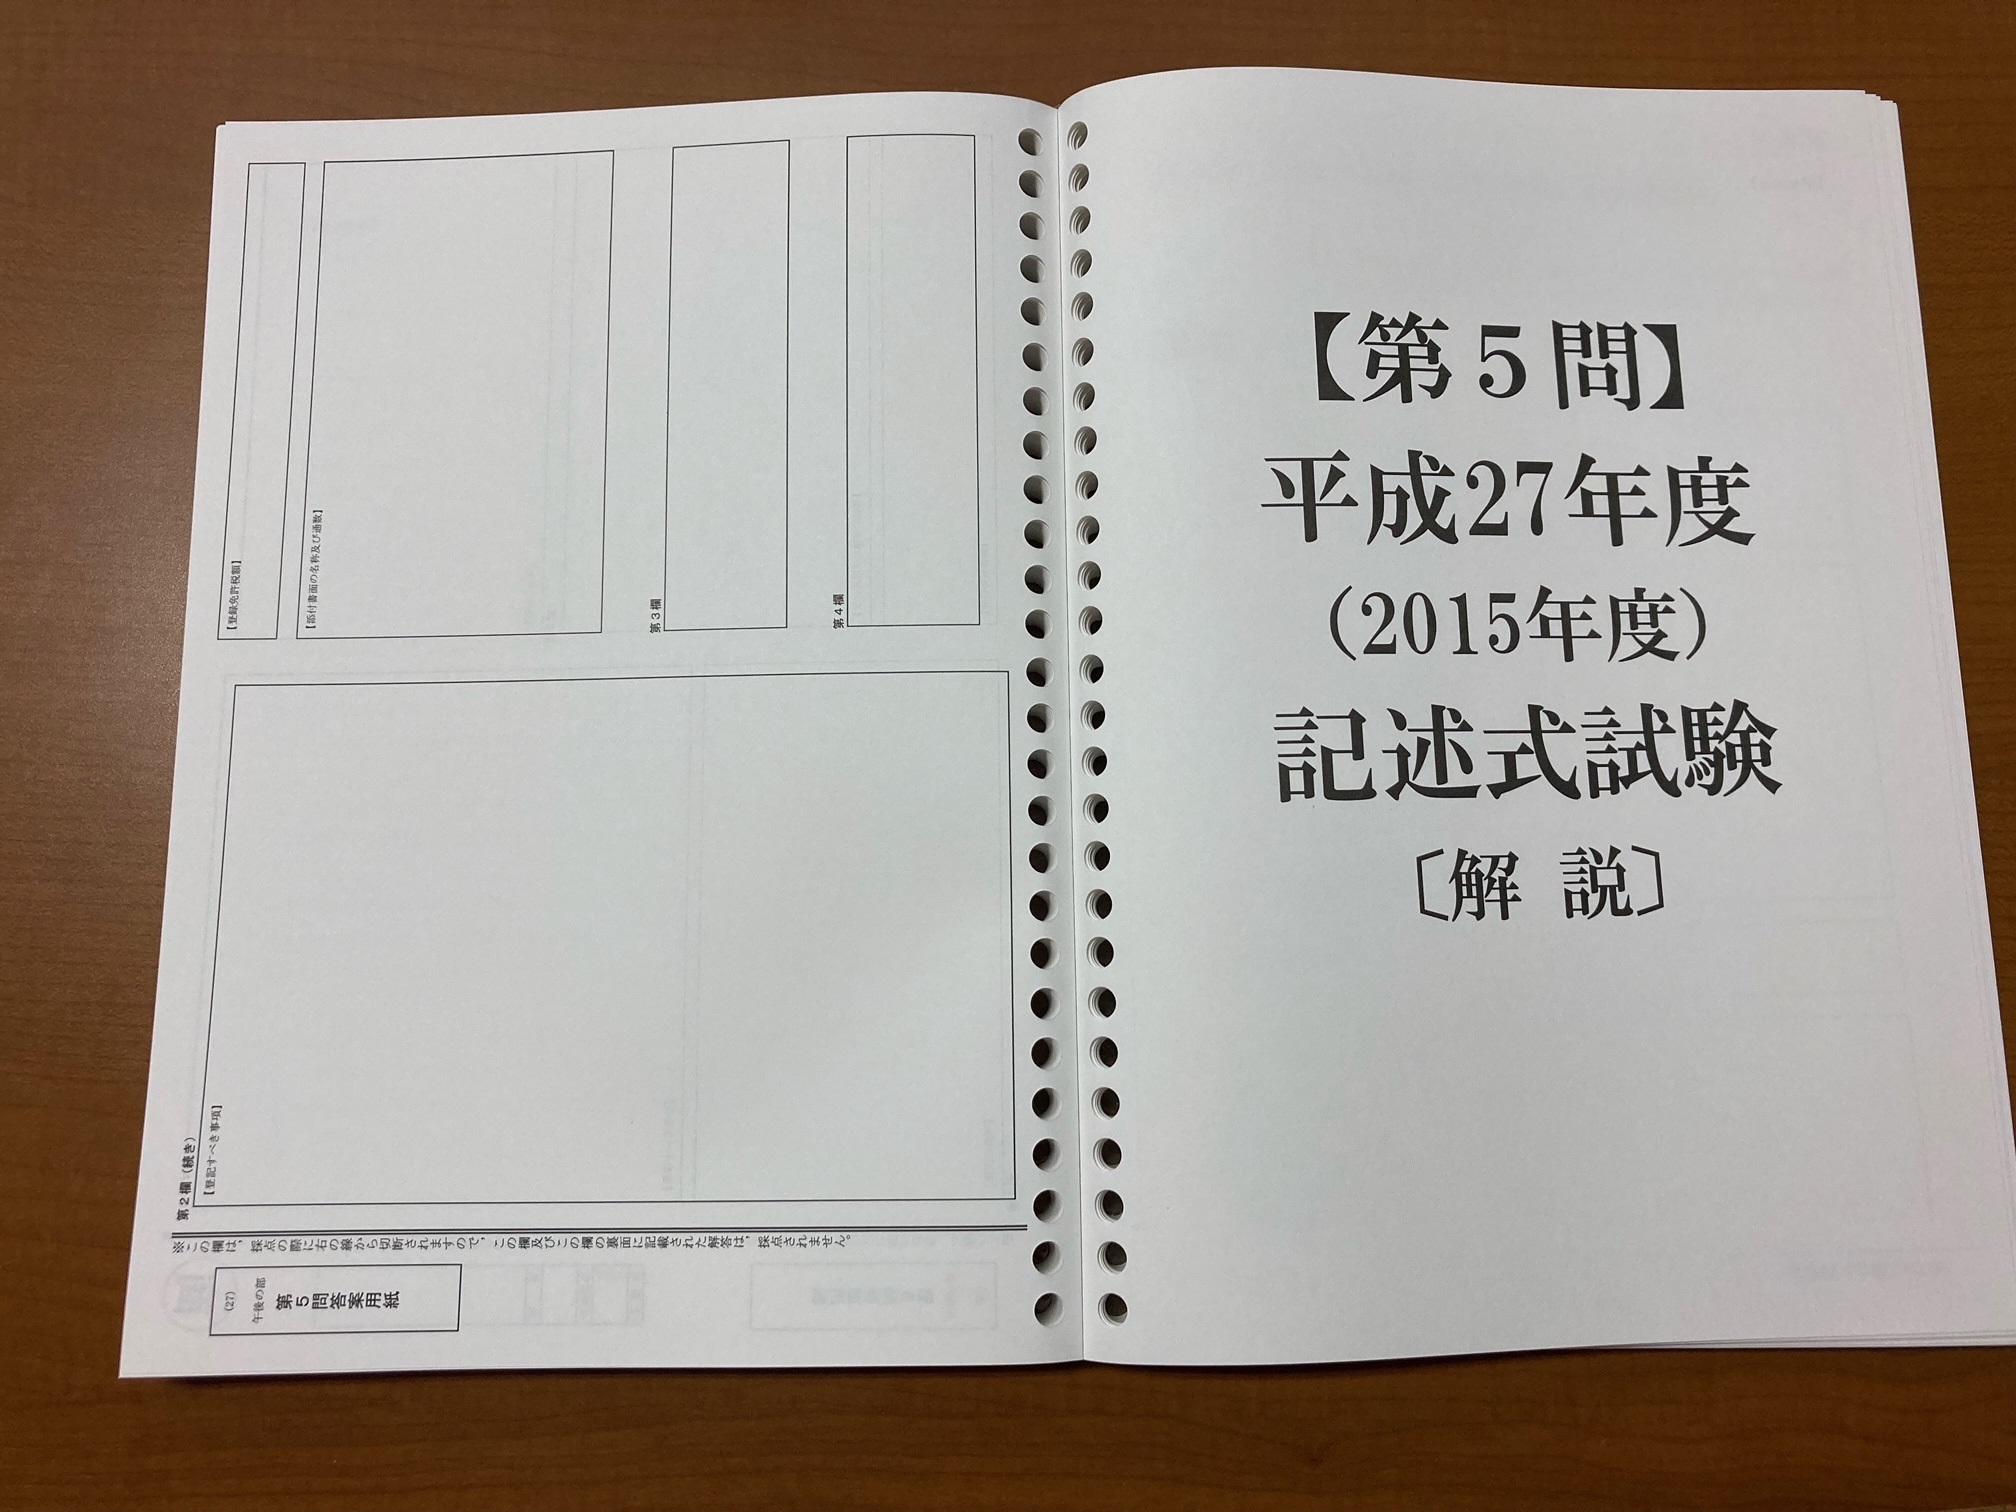 (27)
午後の部
第5問答案用紙
※この欄は，採点の際に右の線から切断されますので，この欄及びこの欄の裏面に記載された解答は，採点されません。
第2欄（続き）
【登記すべき事項】
【登録免許税額】
【添付書面の名称及び通数】
第3欄
第4欄
【第5問】
平成27年度
（2015年度）
記述式試験
〔解 説〕